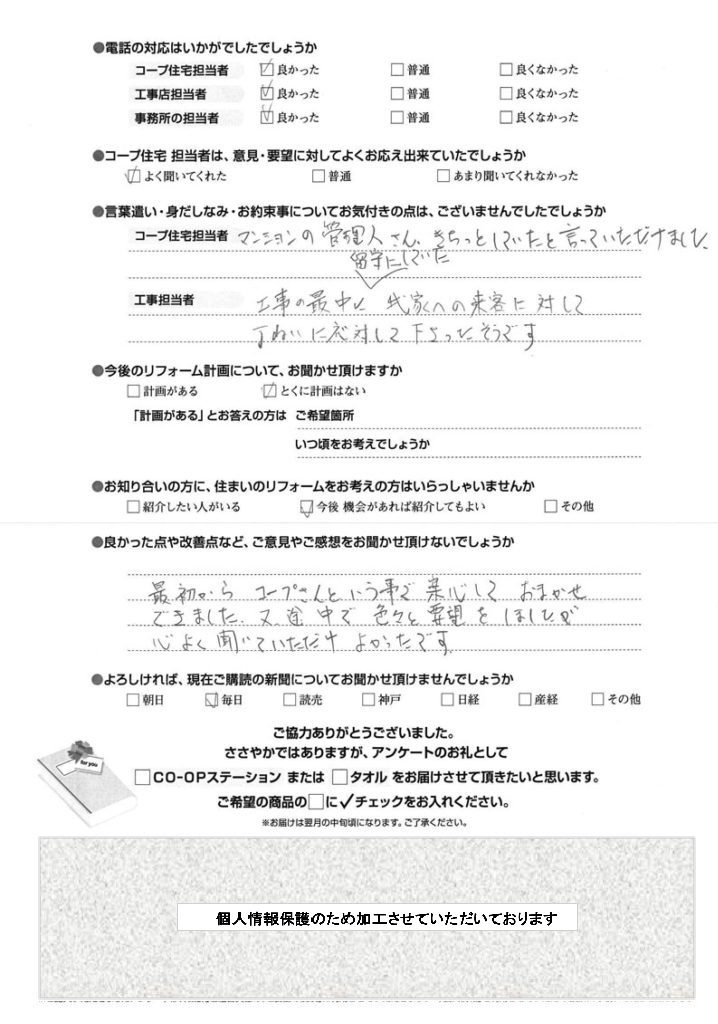 ●電話の対応はいかがでしたでしょうか
コープ住宅担当者 ☑良かった □普通 □良くなかった
工事店担当者 ☑良かった □普通 □良くなかった
事務所の担当者 ☑良かった □普通 □良くなかった
●コープ住宅 担当者は、意見・要望に対してよくお応え出来ていたでしょうか
☑よく聞いてくれた □普通 □あまり聞いてくれなかった
●言葉遣い・身だしなみ・お約束事についてお気付きの点は、ございませんでしたでしょうか
コープ住宅担当者 マンションの管理人さん、きちっとしていたと言っていただけました、
留守にしていた
工事担当者 工事の最中に 我家への来客に対して
丁ねいに応対して下さったそうです
●今後のリフォーム計画について、お聞かせ頂けますか
□計画がある ☑とくに計画はない
「計画がある」とお答えの方は ご希望箇所
いつ頃をお考えでしょうか
●お知り合いの方に、住まいのリフォームをお考えの方はいらっしゃいませんか
□紹介したい人がいる ☑今後 機会があれば紹介してもよい □その他
●良かった点や改善点など、ご意見やご感想をお聞かせ頂けないでしょうか
最初から コープさんという事で 安心して おまかせ
できました、又、途中で 色々と要望を しましたが
心よく聞いていただけ よかったです
●よろしければ、現在ご購読の新聞についてお聞かせ頂けませんでしょうか
□朝日 ☑毎日 □読売 □神戸 □日経 □産経 □その他
ご協力ありがとうございました。
ささやかではありますが、アンケートのお礼として
for you
□CO-OPステーション または □タオル をお届けさせて頂きたいと思います。
ご希望の商品の□に✓チェックをお入れください。
※お届けは翌月の中旬頃になります。ご了承ください。
個人情報保護のため加工させていただいております